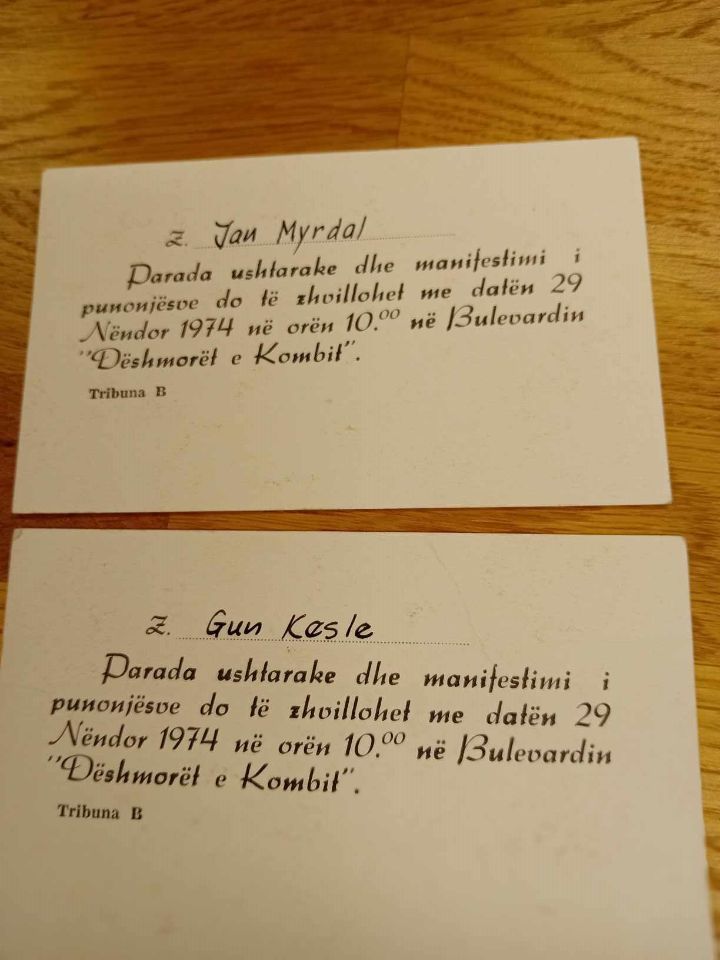 Z. Jan Myrdal
Parada ushtarake dhe manifestimi i
punonjësve do të zhvillohet me datën 29
Nëndor 1974 në orën 10.00 në Bulevardin
"Dëshmorët e Kombit".
Tribuna B
Z. Gun Kesle
Parada ushtarake dhe manifestimi i
punonjësve do të zhvillohet me datën 29
Nëndor 1974 në orën 10.00 në Bulevardin
"Dëshmorët e Kombit".
Tribuna B